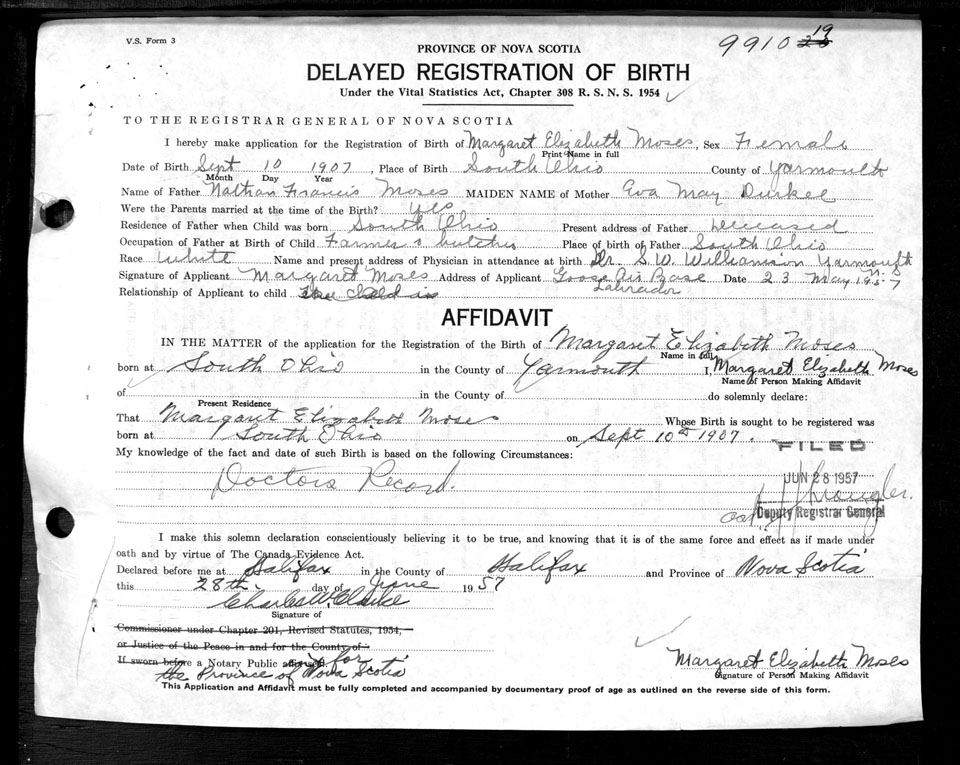 V.S. Form 3
9910 19
PROVINCE OF NOVA SCOTIA
DELAYED REGISTRATION OF BIRTH
Under the Vital Statistics Act, Chapter 308 R. S. N. S. 1954
TO THE REGISTRAR GENERAL OF NOVA SCOTIA
I hereby make application for the Registration of Birth of Margaret Elizabeth Moses, Sex Female
Print Name in full
Date of Birth Sept 10 1907, Place of Birth South Ohio County of Yarmouth
Month Day Year
Name of Father Nathan Francis Moses MAIDEN NAME of Mother Eva May Durkee
Were the Parents married at the time of the Birth? Yes
Residence of Father when Child was born South Ohio Present address of Father Deceased
Occupation of Father at Birth of Child Farmer & butcher Place of birth of Father South Ohio
Race White Name and present address of Physician in attendance at birth Dr. S. W. Williamson Yarmouth N.S.
Signature of Applicant Margaret Moses Address of Applicant Goose Air Base Date 23 May 1957
Labrador
Relationship of Applicant to child The child is
AFFIDAVIT
IN THE MATTER of the application for the Registration of the Birth of Margaret Elizabeth Moses
Name in full
born at South Ohio in the County of Yarmouth I, Margaret Elizabeth Moses
Name of Person Making Affidavit
of in the County of do solemnly declare:
Present Residence
That Margaret Elizabeth Moses Whose Birth is sought to be registered was
born at South Ohio on Sept 10th 1907.
FILED
My knowledge of the fact and date of such Birth is based on the following Circumstances:
Doctors Record.
JUN 28 1957
Deputy Registrar General
I make this solemn declaration conscientiously believing it to be true, and knowing that it is of the same force and effect as if made under
oath and by virtue of The Canada Evidence Act.
Declared before me at Halifax in the County of Halifax and Province of Nova Scotia
this 28th day of June 1957
Charles W. Clarke
Signature of
Commissioner under Chapter 201, Revised Statutes, 1954,
or Justice of the Peace in and for the County of
If sworn before a Notary Public for
the Province of Nova Scotia
Margaret Elizabeth Moses
Signature of Person Making Affidavit
This Application and Affidavit must be fully completed and accompanied by documentary proof of age as outlined on the reverse side of this form.